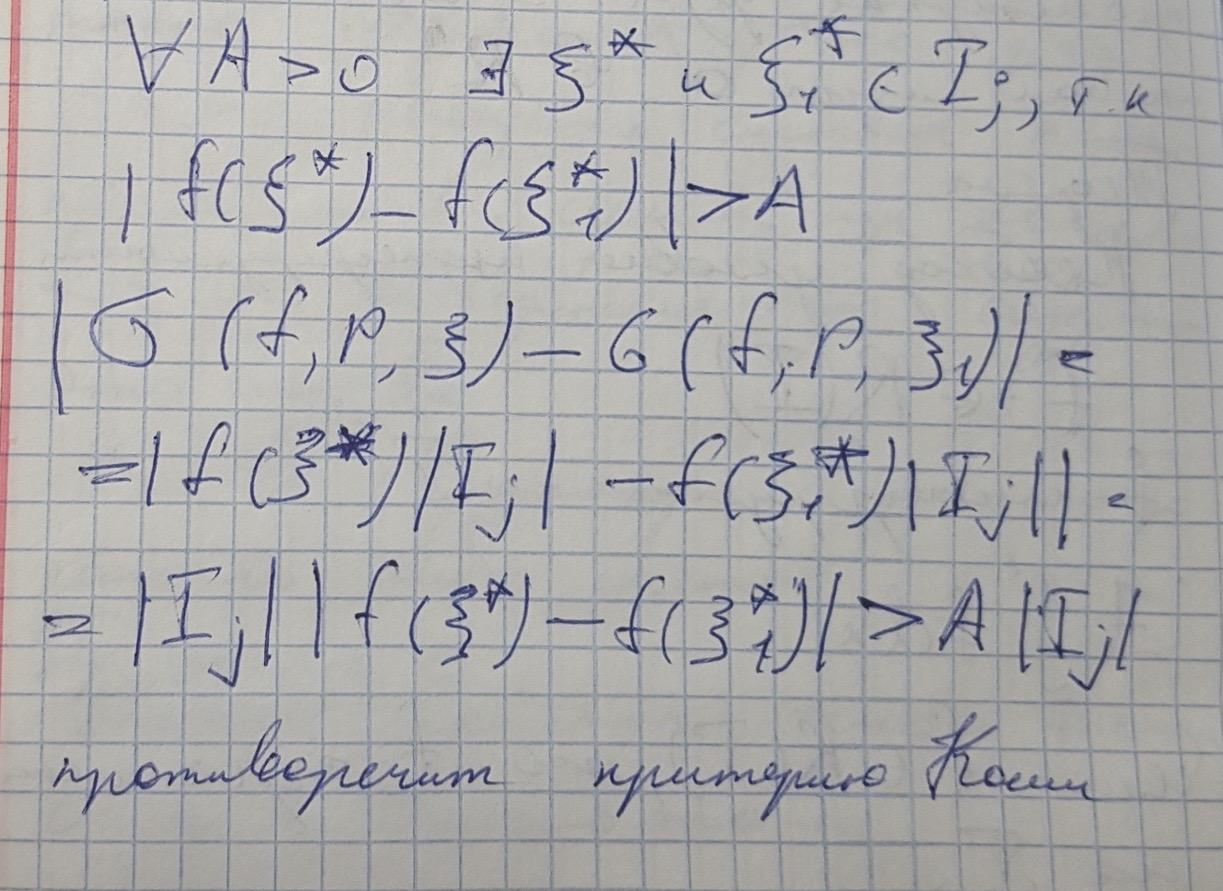 ∀ A > 0 ∃ ξ* и ξ₁* ∈ I_j, т.к
| f(ξ*) - f(ξ₁*) | > A
| σ (f, P, ξ) - σ (f, P, ξ₁) | =
= | f (ξ*) |I_j| - f(ξ₁*) |I_j| | =
= |I_j| | f(ξ*) - f(ξ₁*) | > A |I_j|
противоречит критерию Коши